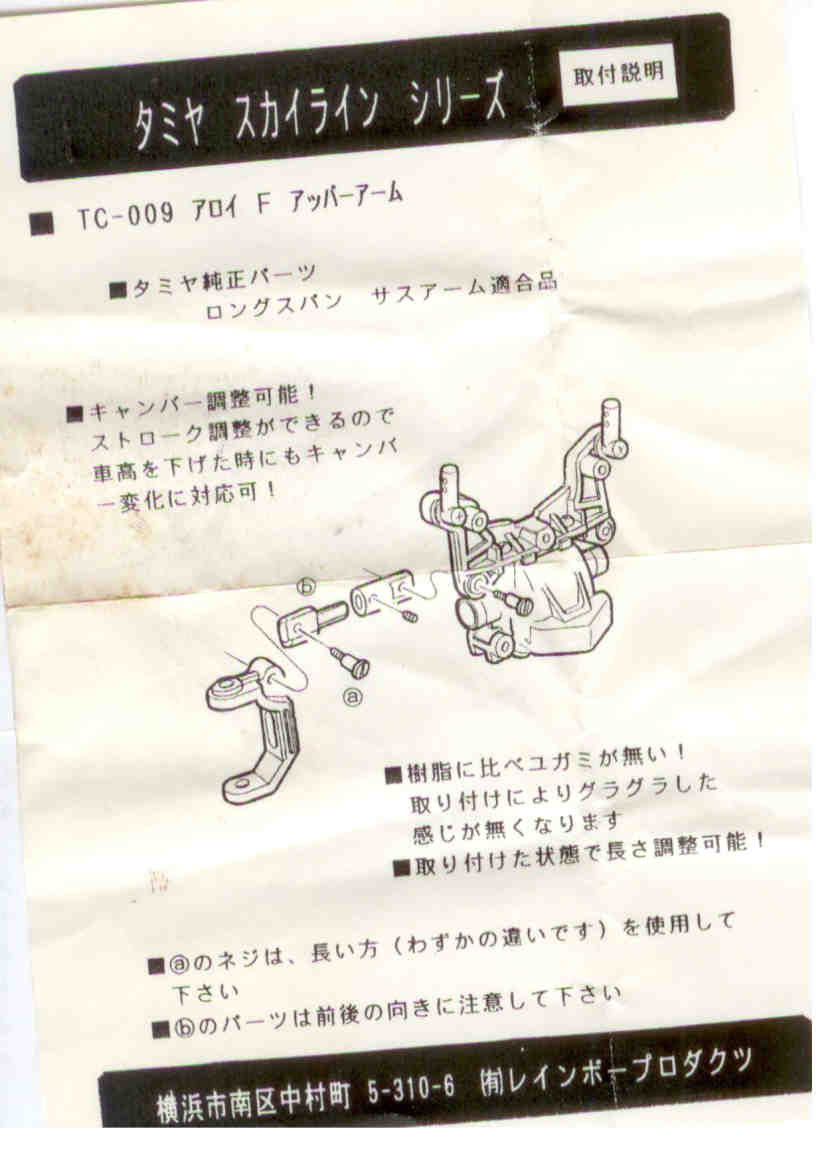 タミヤ スカイライン シリーズ
取付説明
■ TC-009 アロイ F アッパーアーム
■タミヤ純正パーツ
ロングスパン サスアーム適合品
■キャンバー調整可能！
ストローク調整ができるので
車高を下げた時にもキャンバ
ー変化に対応可！
ⓑ
ⓐ
■樹脂に比べユガミが無い！
取り付けによりグラグラした
感じが無くなります
■取り付けた状態で長さ調整可能！
■ⓐのネジは、長い方（わずかの違いです）を使用して
下さい
■ⓑのパーツは前後の向きに注意して下さい
横浜市南区中村町 5-310-6 ㈲レインボープロダクツ